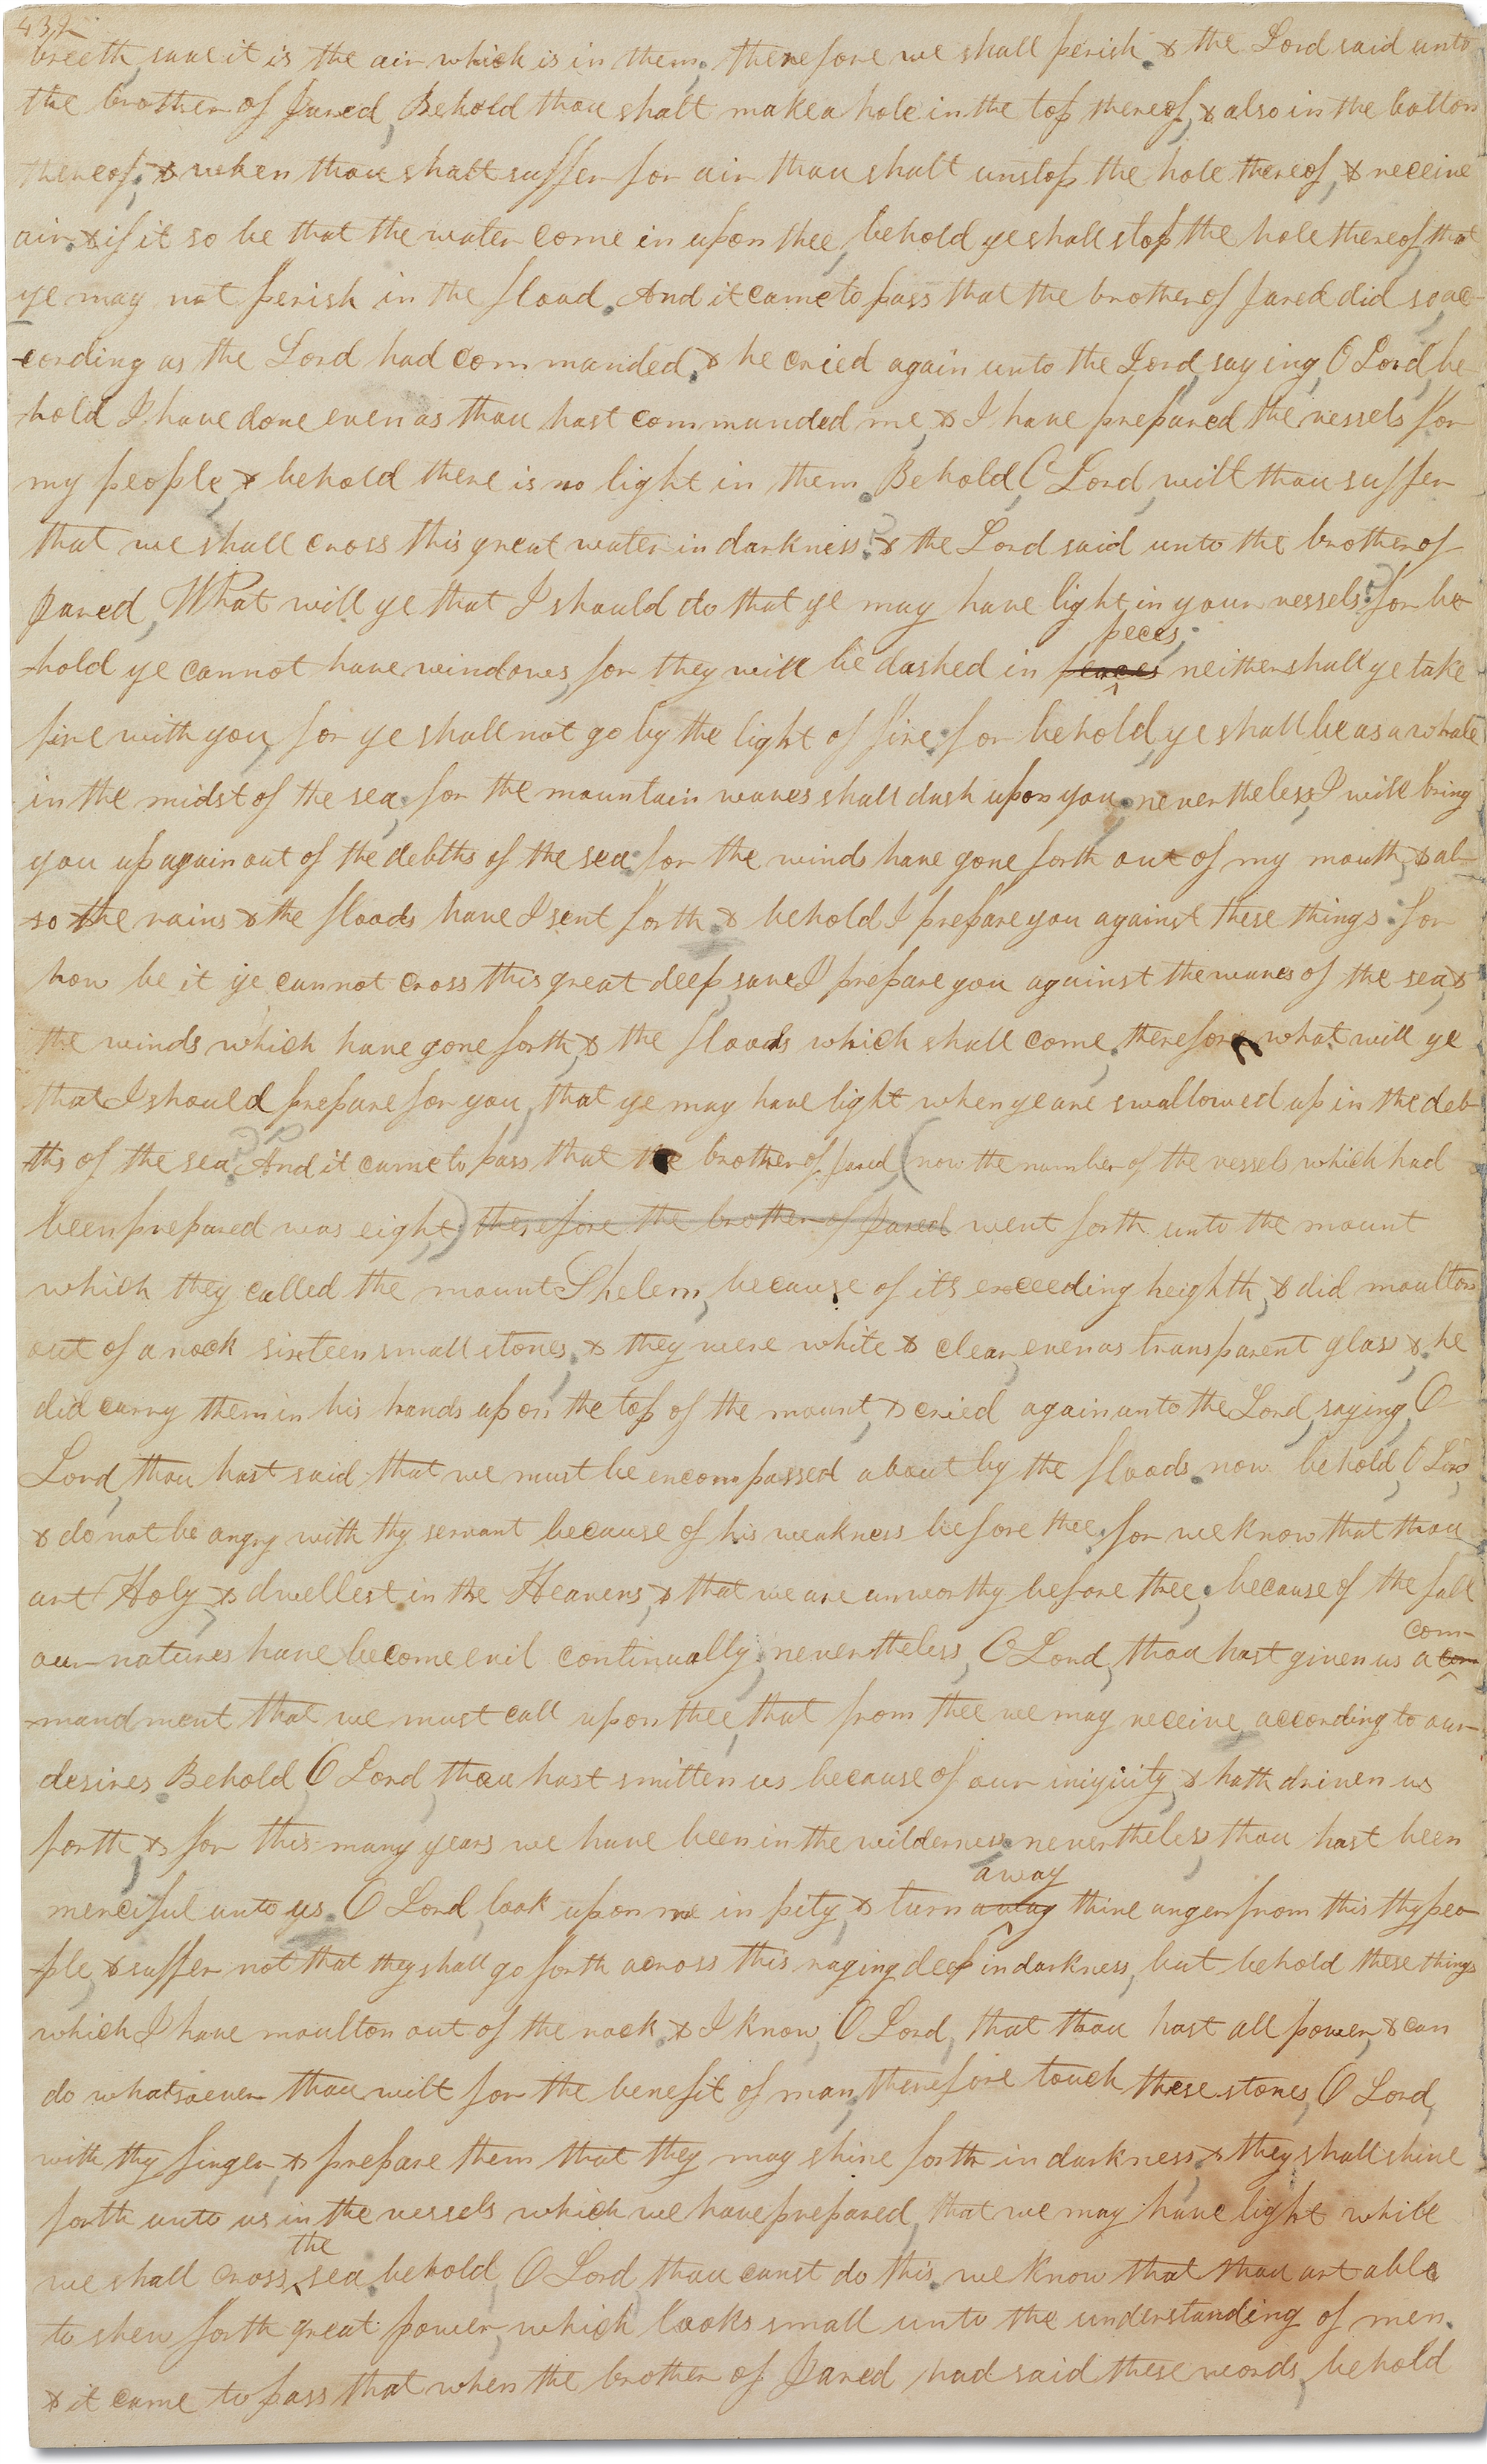 432
breeth save it is the air which is in them, therefore we shall perish. & the Lord said unto
the brother of Jared, Behold thou shalt make a hole in the top thereof, & also in the bottom
thereof; & when thou shalt suffer for air thou shalt unstop the hole thereof, & receive
air. & if it so be that the water come in upon thee, behold ye shall stop the hole thereof, that
ye may not perish in the flood. And it came to pass that the brother of Jared did so, ac-
-cording as the Lord had commanded. & he cried again unto the Lord, saying, O Lord, be-
-hold I have done even as thou hast commanded me, & I have prepared the vessels for
my people, & behold there is no light in them. Behold, O Lord, wilt thou suffer
that we shall cross this great water in darkness? & the Lord said unto the brother of
Jared, What will ye that I should do that ye may have light in your vessels? for be
-hold ye cannot have windows, for they will be dashed in peaces peces; neither shall ye take
fire with you, for ye shall not go by the light of fire: for behold, ye shall be as a whale
in the midst of the sea; for the mountain waves shall dash upon you. nevertheless, I will bring
you up again out of the debths of the sea: for the winds have gone forth out of my mouth, & al-
-so the rains & the floods have I sent forth. & behold I prepare you against these things: for
how be it ye cannot cross this great deep, save I prepare you against the waves of the sea, &
the winds which have gone forth, & the floods which shall come, therefore what will ye
that I should prepare for you, that ye may have light when ye are swallowed up in the deb-
-ths of the sea? And it came to pass that the brother of Jared, (now the number of the vessels which had
been prepared was eight) therefore the brother of Jared went forth unto the mount
which they called the mount Shelem, because of its exceeding heighth, & did moulton
out of a rock sixteen small stones, & they were white & clear, even as transparent glass. & he
did carry them in his hands upon the top of the mount, & cried again unto the Lord, saying, O
Lord, thou hast said that we must be encompassed about by the floods. now behold, O Lord,
& do not be angry with thy servant because of his weakness before thee; for we know that thou
art Holy, & dwellest in the Heavens, & that we are unworthy before thee; because of the fall
our natures have become evil continually; nevertheless, O Lord, thou hast given us a com com-
-mandment that we must call upon thee, that from thee we may receive according to our
desires. Behold, O Lord, thou hast smitten us because of our iniquity, & hath driven us
forth, & for this many years we have been in the wilderness. nevertheless, thou hast been
merciful unto us. O Lord, look upon me in pity, & turn away away thine anger from this thy peo-
-ple, & suffer not that they shall go forth across this raging deep in darkness, but behold these things
which I have moulton out of the rock. & I know, O Lord, that thou hast all power, & can
do whatsoever thou wilt for the benefit of man, therefore touch these stones, O Lord,
with thy finger, & prepare them that they may shine forth in darkness, & they shall shine
forth unto us in the vessels which we have prepared, that we may have light while
we shall cross the sea. behold, O Lord thou canst do this. we know that thou art able
to shew forth great power, which looks small unto the understanding of men.
& it came to pass that when the brother of Jared had said these words, behold